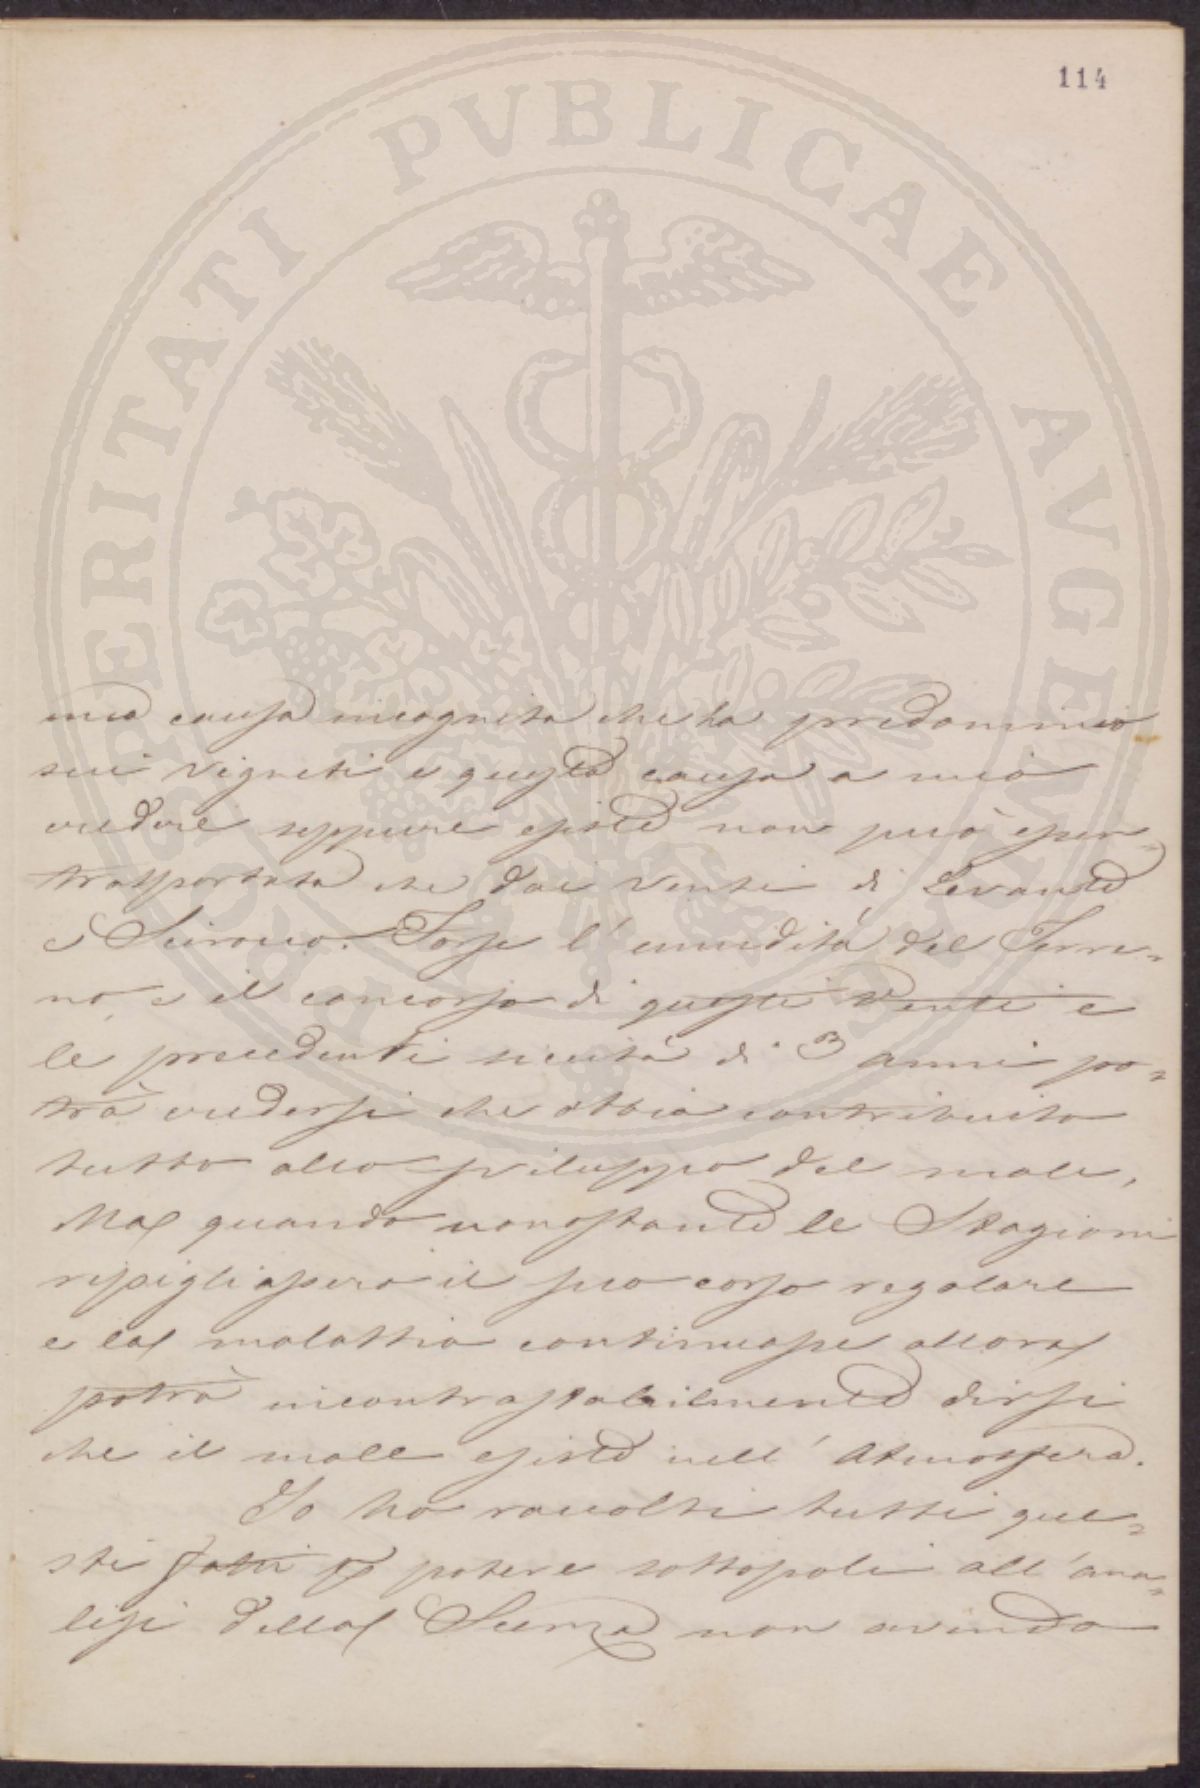 114
PROSPERITATI PUBLICAE AUGENDAE
una causa incognita che ha predominio
sui Vigneti e questa causa a mio
credere seppure esiste non può esser
trasportata che dai venti di Levante
e Scirocco. Forse l'umidità del Terre=
no e il concorso di questi Venti e
le precedenti siccità di 3 anni po=
trà credersi che abbia contribuito
tutto allo sviluppo del male,
Ma quando nonostante le Stagioni
ripigliassero il suo corso regolare
e la malattia continuasse allora
potrà incontrastabilmente dirsi
che il male esiste nell'Atmosfera.
Io ho raccolti tutti que=
sti fatti p potere sottoporli all'ana=
lisi della Scienza non avendo